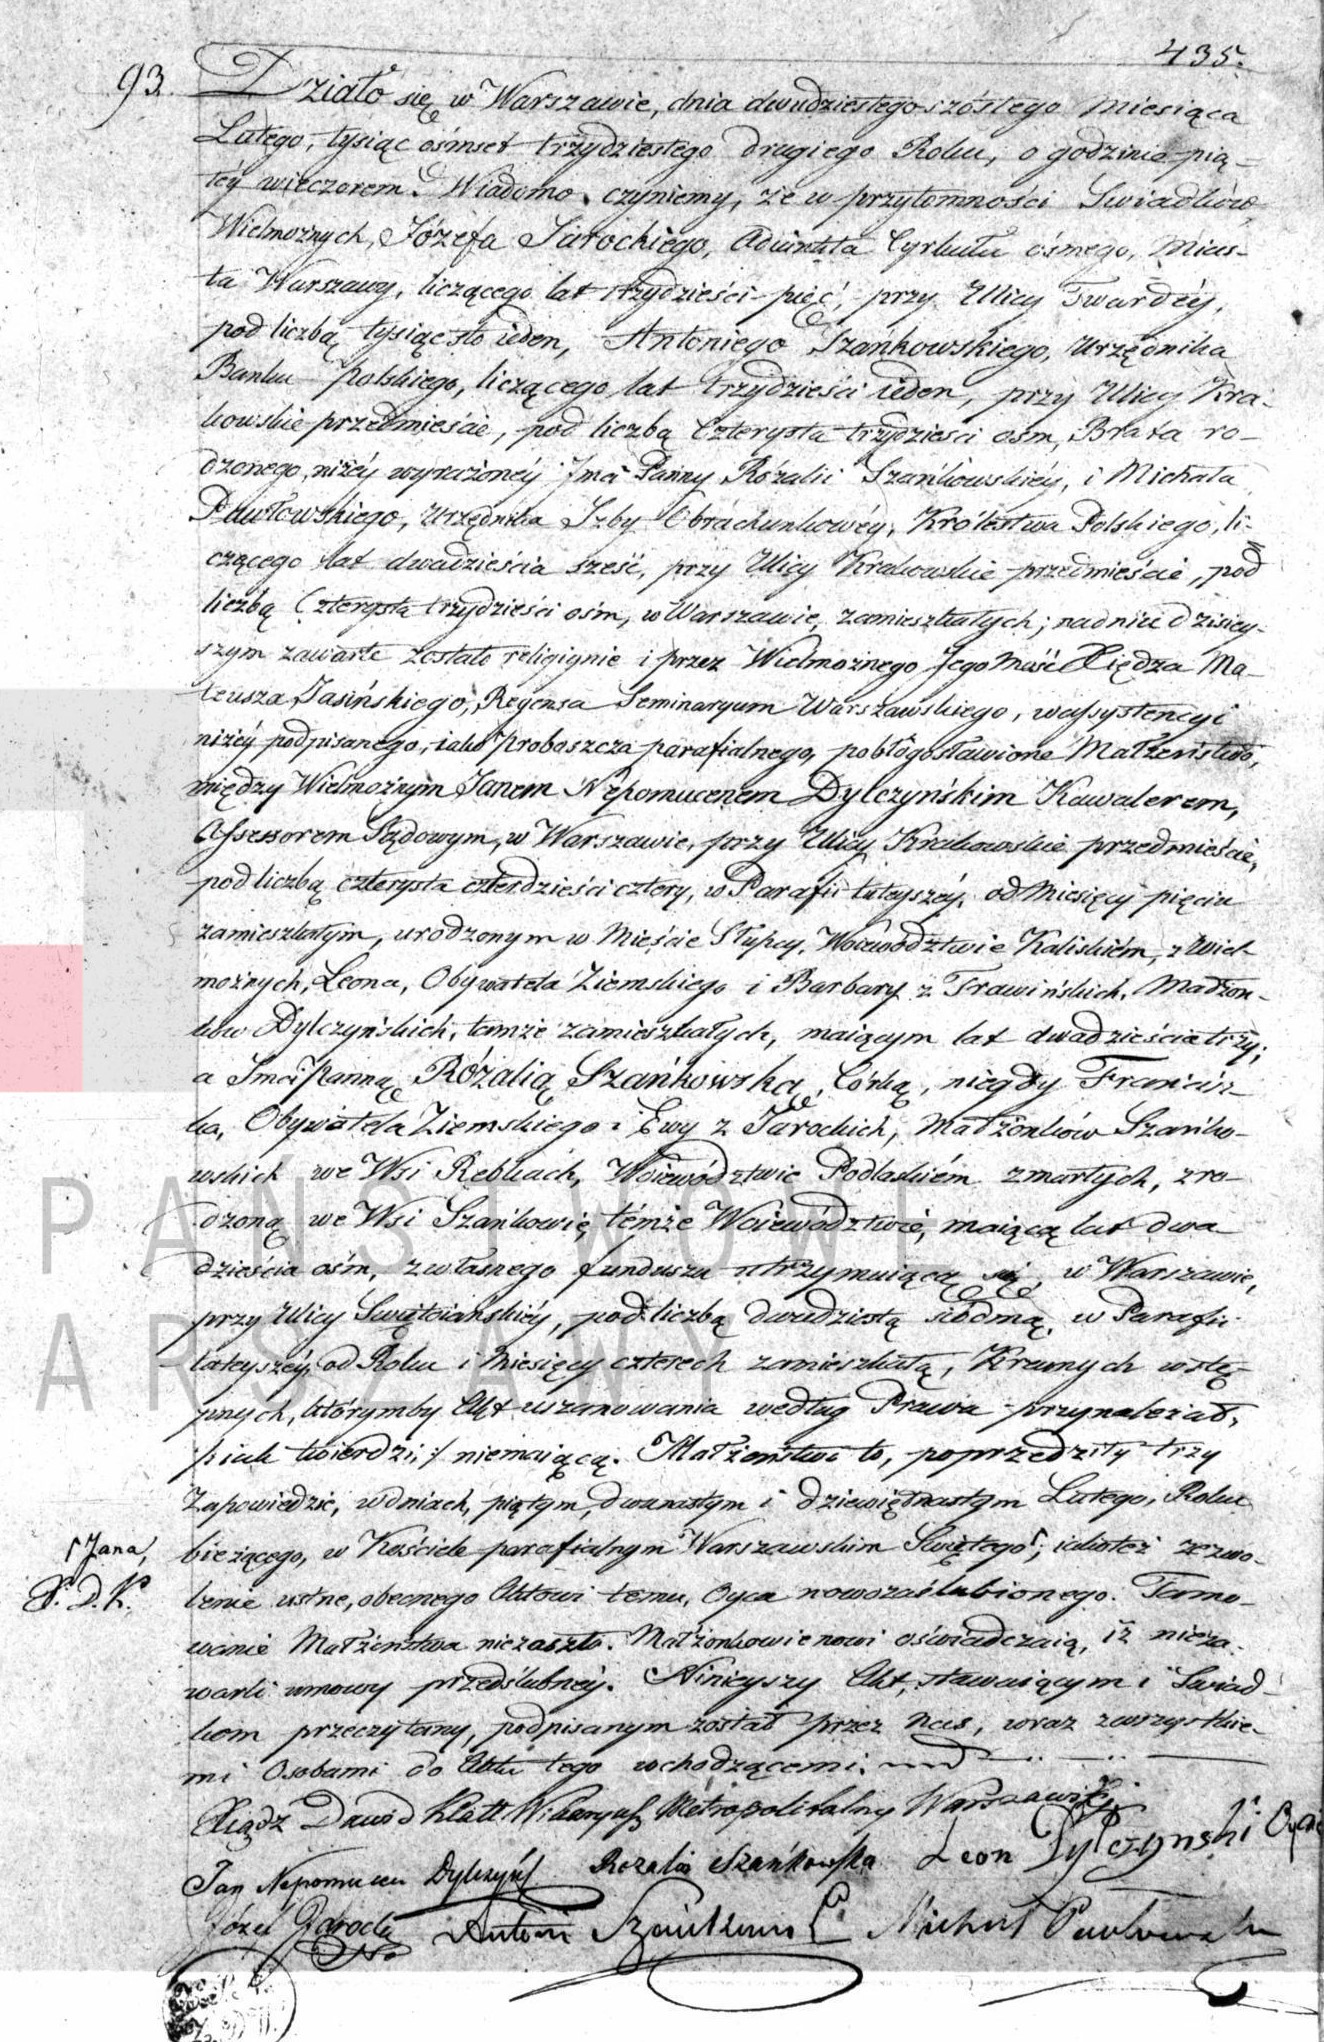 435.
93. Działo się w Warszawie, dnia dwudziestego szóstego Miesiąca
Lutego, tysiąc ośmset trzydziestego drugiego Roku, o godzinie pią-
téy wieczorem. Wiadomo czyniemy, że w przytomności Swiadków
Wielmożnych, Józefa Jarockiego, Adiunkta Cyrkułu ósmego, Mias-
ta Warszawy, liczącego lat trzydzieści pięć, przy Ulicy Twardéy,
pod liczbą tysiąc sto ieden, Antoniego Szańkowskiego, Urzędnika
Banku Polskiego, liczącego lat trzydzieści ieden, przy Ulicy Kra-
kowskie przedmieście, pod liczbą Czterysta trzydzieści ośm, Brata ro-
dzonego, niżéy wyrażonéy Jmci Panny Rózalii Szańkowskiéy, i Michała
Pawłowskiego, Urzędnika Izby Obrachunkowéy, Królestwa Polskiego, li-
czącego lat dwadzieścia sześć, przy Ulicy Krakowskie przedmieście, pod
liczbą Czterysta trzydzieści ośm, w Warszawie, zamieszkałych; na dniu dzisiey-
szym zawarte zostało religiynie i przez Wielmożnego Jego Mość Xiędza Ma-
teusza Jasińskiego, Regensa Seminaryum Warszawskiego, w assystencyi
niżéy podpisanego, iako Proboszcza parafialnego, pobłogosławione Małżeństwo,
między Wielmożnym Janem Nepomucenem Dylczyńskim Kawalerem,
Assessorem Sądowym, w Warszawie, przy Ulicy Krakowskie przedmieście,
pod liczbą czterysta czterdzieści cztery, w Parafii tuteyszéy, od Miesięcy pięciu
zamieszkałym, urodzonym w Mieście Słupcy, Woiewództwie Kaliskiém, z Wiel-
możnych, Leona, Obywatela Ziemskiego i Barbary z Trawińskich, Małżon-
ków Dylczyńskich, tamże zamieszkałych, maiącym lat dwadzieścia trzy;
a Jmci Panną Rózalią Szańkowską, Córką, niegdy Francisz-
ka, Obywatela Ziemskiego i Ewy z Jarockich, Małżonków Szańko-
wskich we Wsi Rebkach, Woiewództwie Podlaskiém zmarłych, zro-
dzoną we Wsi Szańkowie, témże Woiewództwie, maiącą lat dwa
dzieścia ośm, z własnego funduszu utrzymuiącą się, w Warszawie,
przy Ulicy Swiętoiańskiéy, pod liczbą dwudziestą siódmą, w Parafii
tuteyszéy od Roku i Miesięcy czterech zamieszkałą, Krewnych wstę-
pnych, którymby Akt uszanowania według Prawa przynależał,
/: iak twierdzi, :/ niemaiącą. Małżeństwo to, poprzedziły trzy
Zapowiedzie, w dniach, piątym, dwunastym i dziewiętnastym Lutego, Roku
bieżącego, w Kościele parafialnym Warszawskim Swiętego ſ; iakoteż zezwo-
ſ Jana,
X. D. K.
lenie ustne, obecnego Aktowi temu, Oyca nowozaślubionego. Tamo-
wanie Małżeństwa niezaszło. Małżonkowie nowi oświadczaią, iż nieza-
warli umowy przedślubnéy. Ninieyszy Akt, stawaiącym i Swiad-
kom przeczytany, podpisanym został przez Nas, wraz z wszystkie-
mi Osobami do Aktu tego wchodzącemi.
Xiądz Dawid Klatt Wikaryusz Metropolitalny Warszawski
Jan Nepomucen Dylczyńs Rozalia Szańkowska Leon Dylczynski Oyciec
Józef Jarocki Antoni Szańkowski Michał Pawłowski
PAŃSTWOWE
ARSZAWY